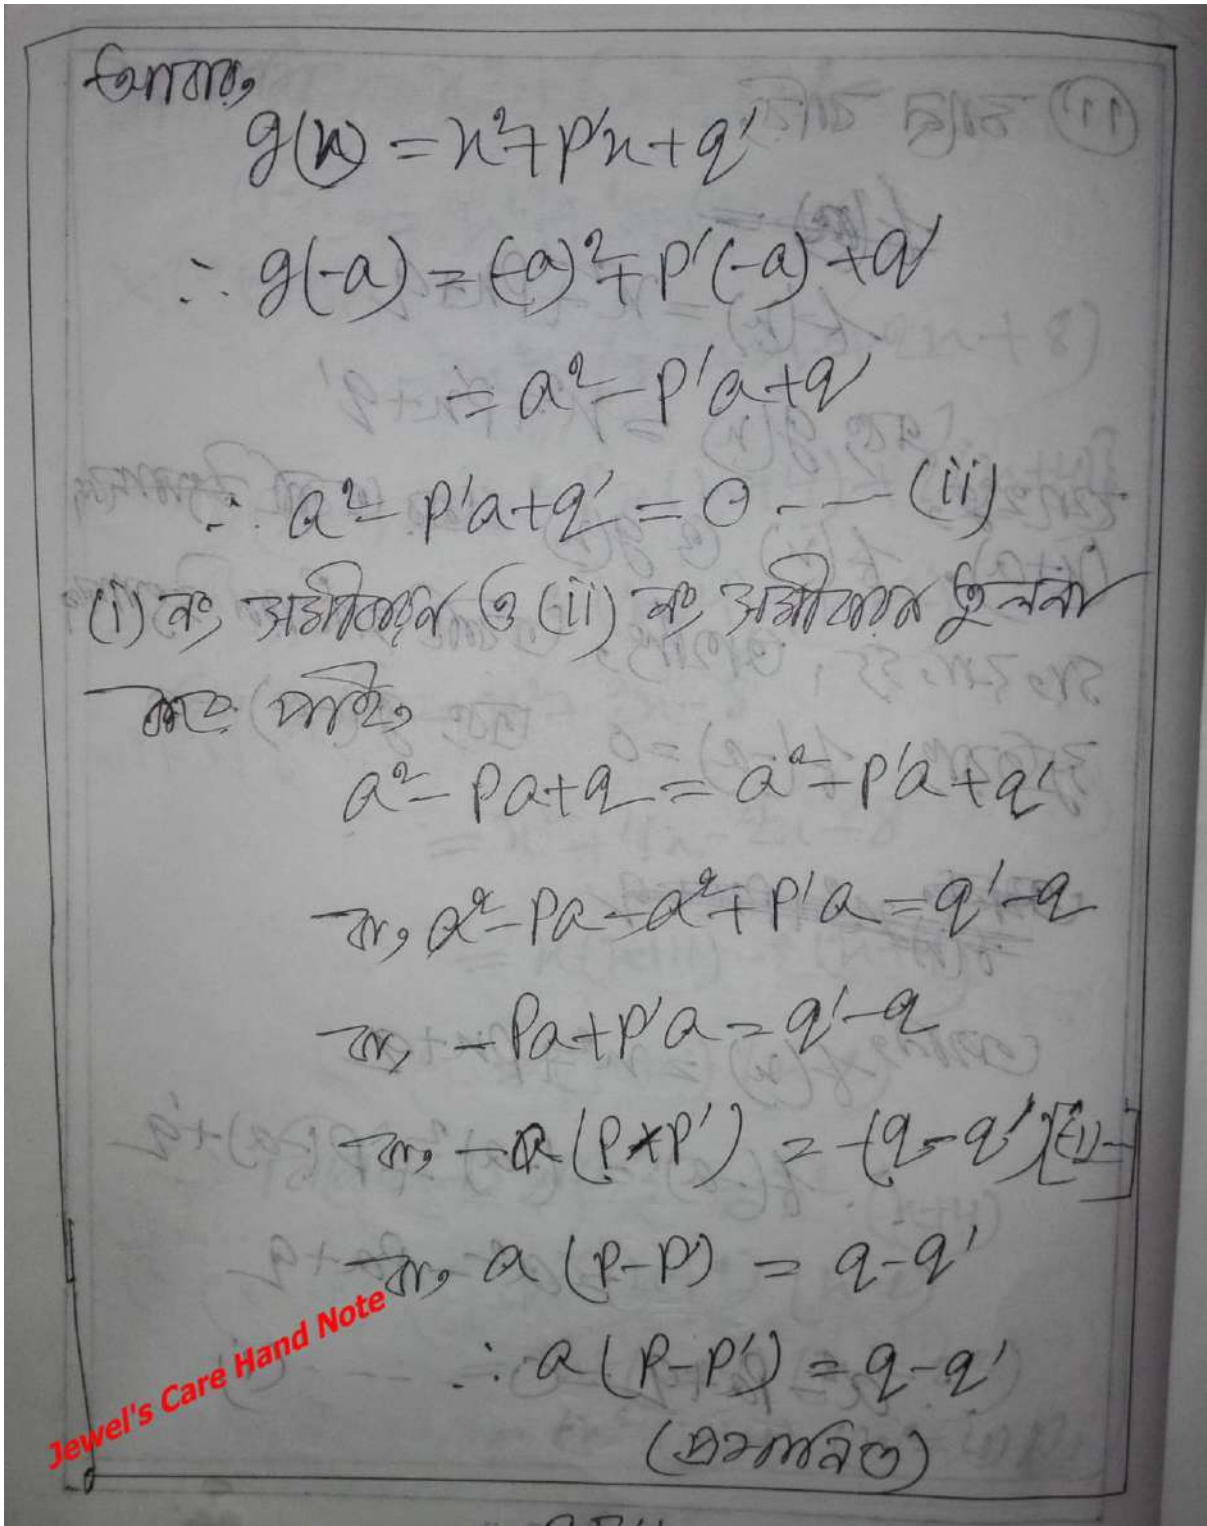 আবার,
g(x) = x² + p'x + q'
∴ g(-a) = (-a)² + p'(-a) + q'
= a² - p'a + q'
∴ a² - p'a + q' = 0 --- (ii)
(i) নং সমীকরণ ও (ii) নং সমীকরণ তুলনা
করে পাই,
a² - pa + q = a² - p'a + q'
বা, a² - pa - a² + p'a = q' - q
বা, - pa + p'a = q' - q
বা, - a (p - p') = -(q - q')
বা, a (p - p') = q - q'
∴ a (p - p') = q - q'
(প্রমাণিত)
Jewel's Care Hand Note